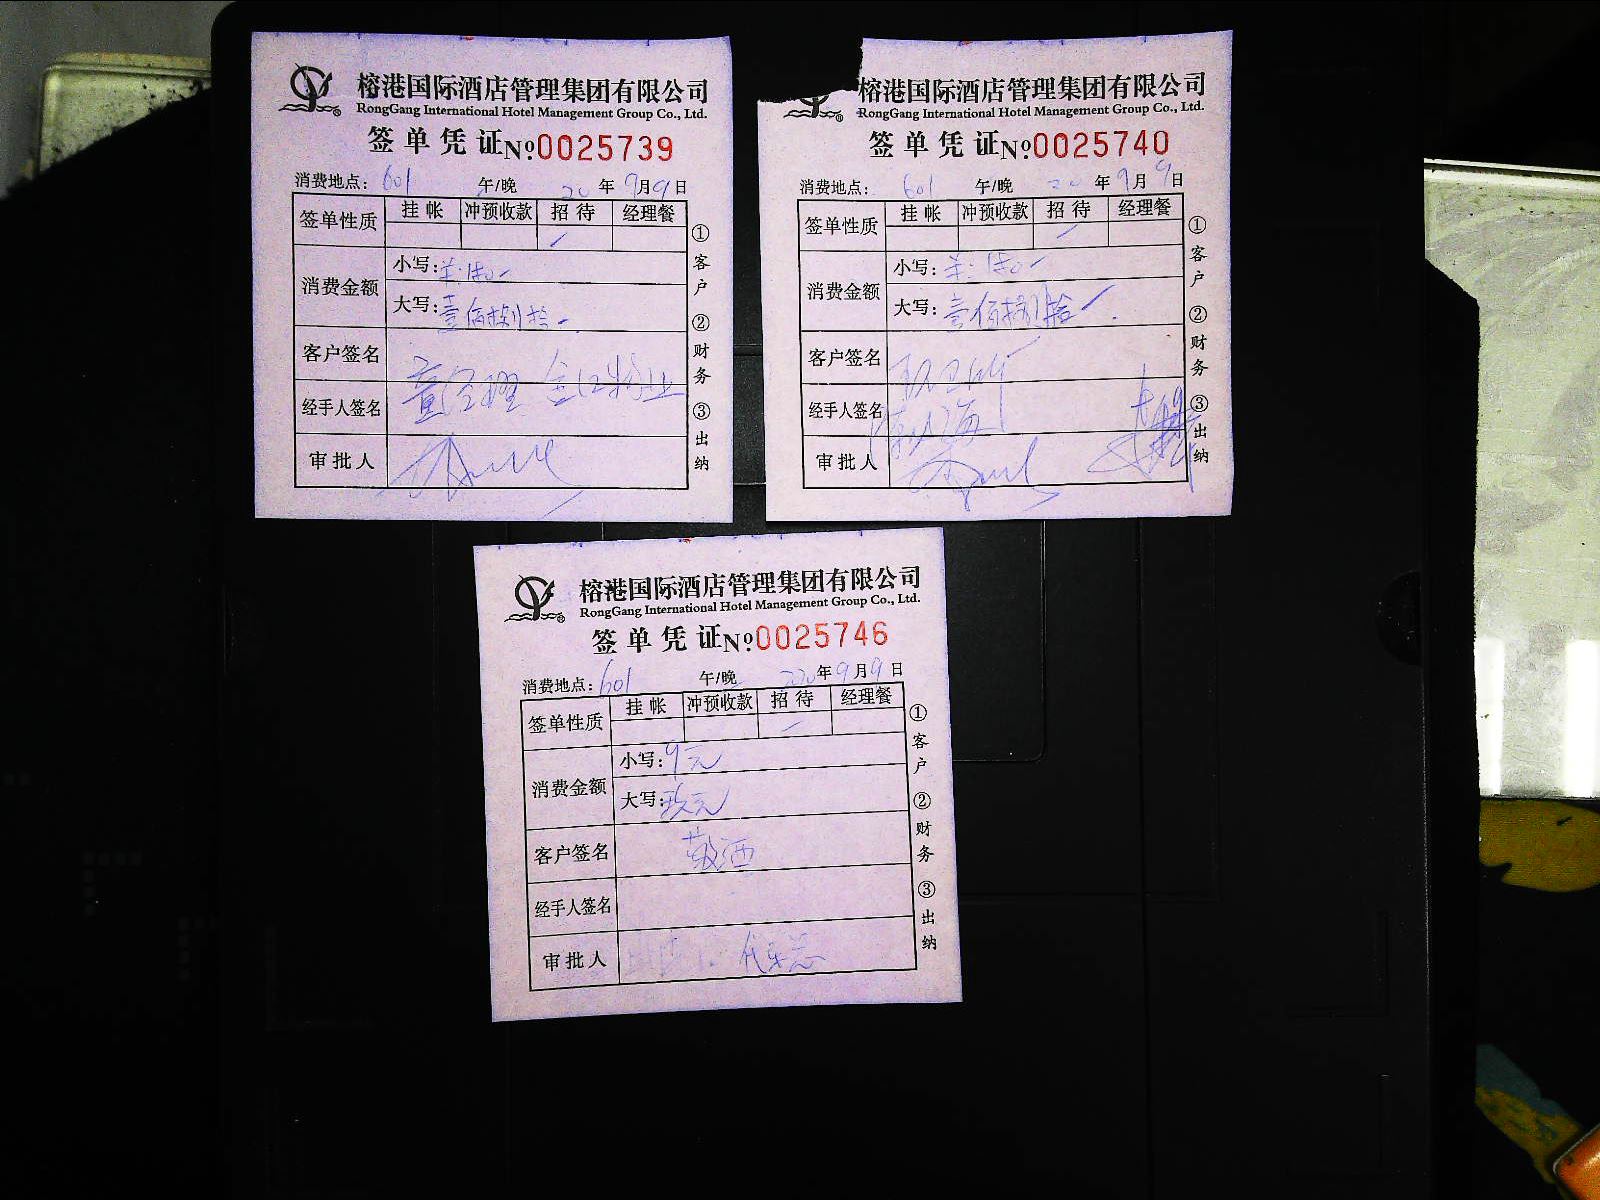 榕港国际酒店管理集团有限公司
RongGang International Hotel Management Group Co., Ltd.
签单凭证 №0025739
消费地点: 601 午/晚 20年9月9日
签单性质 挂帐 冲预收款 招待 经理餐
消费金额 小写:
大写: 壹佰捌拾
客户签名
经手人签名
审批人
①客户 ②财务 ③出纳
榕港国际酒店管理集团有限公司
RongGang International Hotel Management Group Co., Ltd.
签单凭证 №0025740
消费地点: 601 午/晚 20年9月9日
签单性质 挂帐 冲预收款 招待 经理餐
消费金额 小写:
大写: 壹佰捌拾
客户签名
经手人签名
审批人
①客户 ②财务 ③出纳
榕港国际酒店管理集团有限公司
RongGang International Hotel Management Group Co., Ltd.
签单凭证 №0025746
消费地点: 601 午/晚 2020年9月9日
签单性质 挂帐 冲预收款 招待 经理餐
消费金额 小写: 9元
大写: 玖元
客户签名 敬酒
经手人签名
审批人
①客户 ②财务 ③出纳